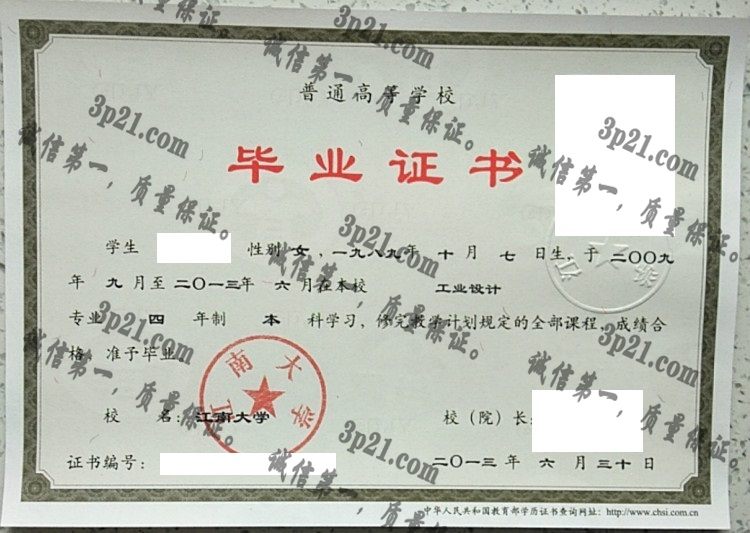 普通高等学校
毕业证书
学生 性别 女 ,一九八九年 十 月 七 日生,于 二〇〇九
年 九 月至 二〇一三年 六 月在本校 工业设计
专业 四 年制 本 科学习,修完教学计划规定的全部课程,成绩合
格,准予毕业。
江南大学
校 名:江南大学 校(院)长:
证书编号: 二〇一三 年 六 月 三十 日
中华人民共和国教育部学历证书查询网址:http://www.chsi.com.cn
3p21.com
诚信第一,质量保证。
3p21.com
诚信第一,质量保证。
3p21.com
诚信第一,质量保证。
3p21.com
诚信第一,质量保证。
3p21.com
诚信第一,质量保证。
3p21.com
诚信第一,质量保证。
3p21.com
诚信第一,质量保证。
3p21.com
诚信第一,质量保证。